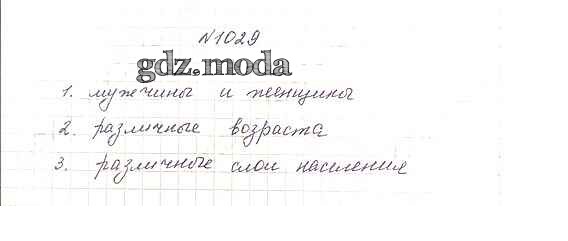 №1029
gdz.moda
1. мужчины и женщины
2. различные возраста
3. различные слои населения